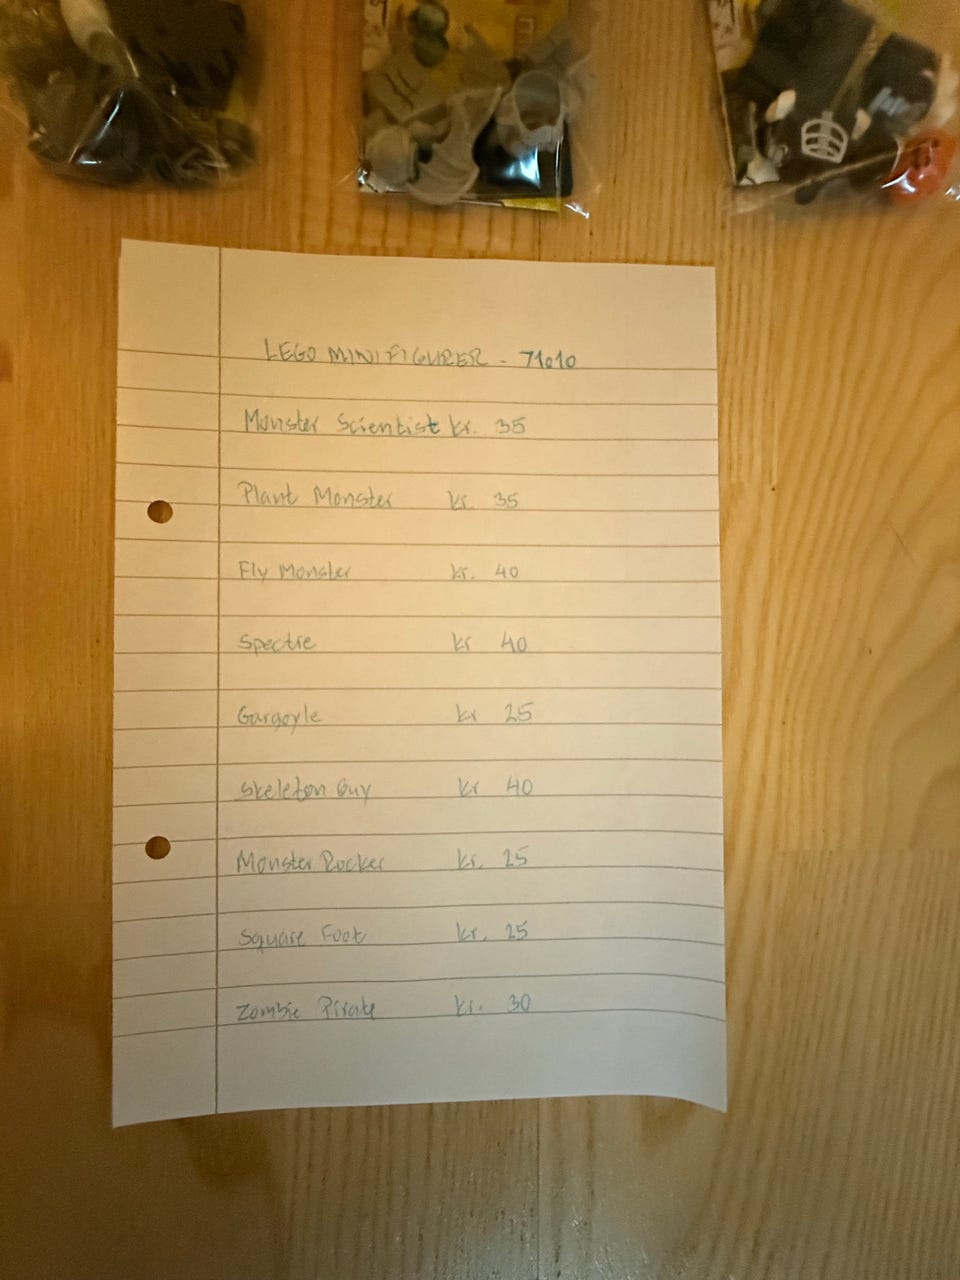 LEGO MINIFIGURER - 71010
Monster Scientist kr. 35
Plant Monster kr. 35
Fly Monster kr. 40
Spectre kr 40
Gargoyle kr 25
Skeleton Guy kr 40
Monster Rocker kr. 25
Square Foot kr. 25
Zombie Pirate kr. 30